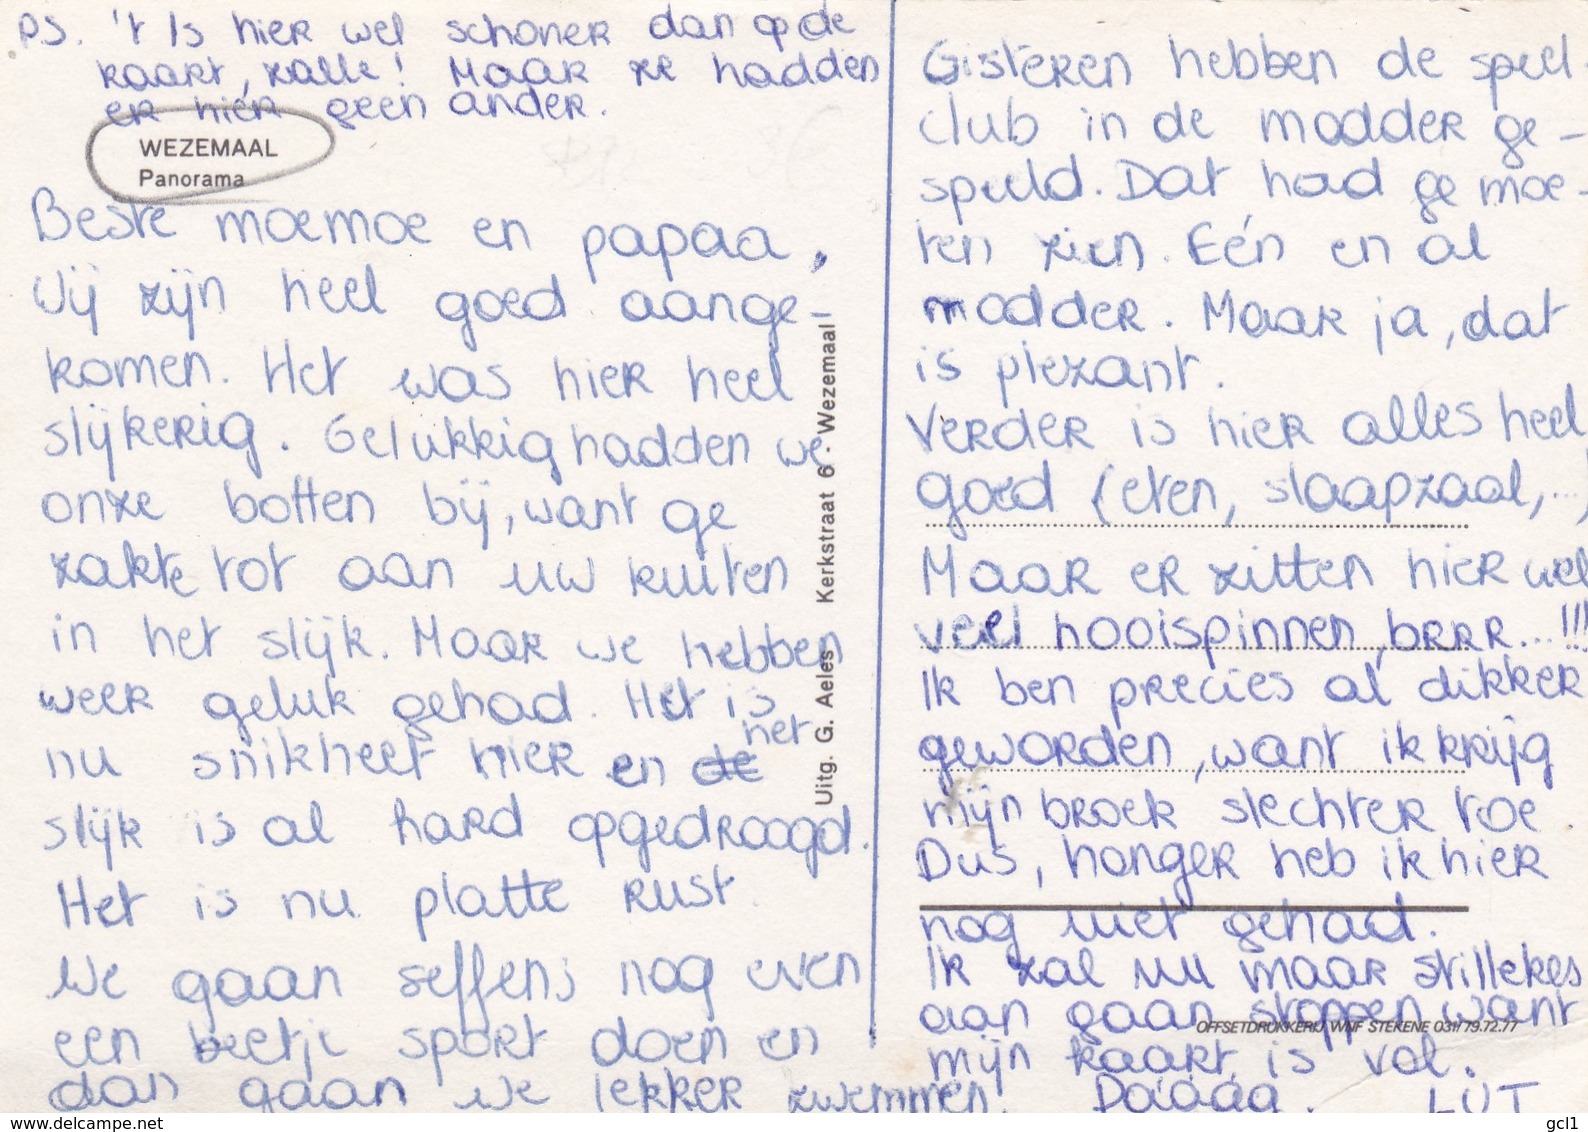 PS. 't Is hier wel schoner dan op de
kaart, zalle! Maar ze hadden
er hier geen ander.
WEZEMAAL
Panorama
Beste moemoe en papaa,
Wij zijn heel goed aange-
komen. Het was hier heel
slijkerig. Gelukkig hadden we
onze botten bij, want ge
zakte tot aan uw kuiten
in het slijk. Maar we hebben
weer geluk gehad. Het is
nu snikheet hier en de het
slijk is al hard opgedroogd.
Het is nu platte rust.
We gaan seffens nog even
een beetje sport doen en
dan gaan we lekker zwemmen!
Uitg. G. Aeles Kerkstraat 6 - Wezemaal
Gisteren hebben de speel-
club in de modder ge-
speeld. Dat had ge moe-
ten zien. Eén en al
modder. Maar ja, dat
is plezant.
Verder is hier alles heel
goed (eten, slaapzaal,...)
Maar er zitten hier wel
veel hooispinnen, brrr...!!!
Ik ben precies al dikker
geworden, want ik krijg
mijn broek slechter toe
Dus, honger heb ik hier
nog niet gehad.
Ik zal nu maar stillekes
aan gaan stoppen want
OFFSETDRUKKERIJ WNF STEKENE 031/79.72.77
mijn kaart is vol.
Daááág. LUT
delcampe.net
gcl1